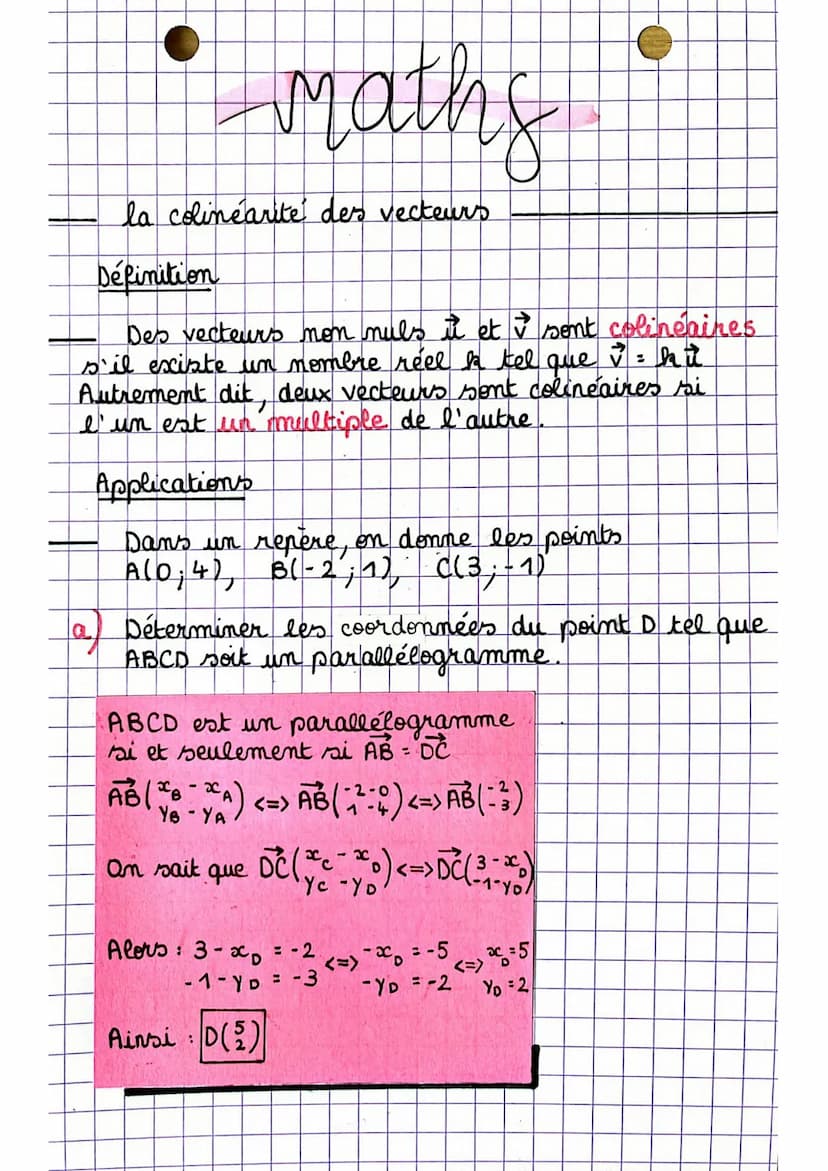 maths
la colinéarité des vecteurs
Définition
Des vecteurs non nuls u⃗ et v⃗ sont colinéaires
s'il existe un nombre réel k tel que v⃗ = k u⃗
Autrement dit, deux vecteurs sont colinéaires si
l'un est un multiple de l'autre.
Applications
Dans un repère, on donne les points
A(0;4), B(-2;1), C(3;-1)
a) Déterminer les coordonnées du point D tel que
ABCD soit un parallélogramme.
ABCD est un parallélogramme
si et seulement si AB⃗ = DC⃗
AB⃗ (xB - xA / yB - yA) <=> AB⃗ (-2-0 / 1-4) <=> AB⃗ (-2 / -3)
On sait que DC⃗ (xC - xD / yC - yD) <=> DC⃗ (3-xD / -1-yD)
Alors : 3-xD = -2 <=> -xD = -5 <=> xD = 5
-1-yD = -3 -yD = -2 yD = 2
Ainsi : D(5 / 2)